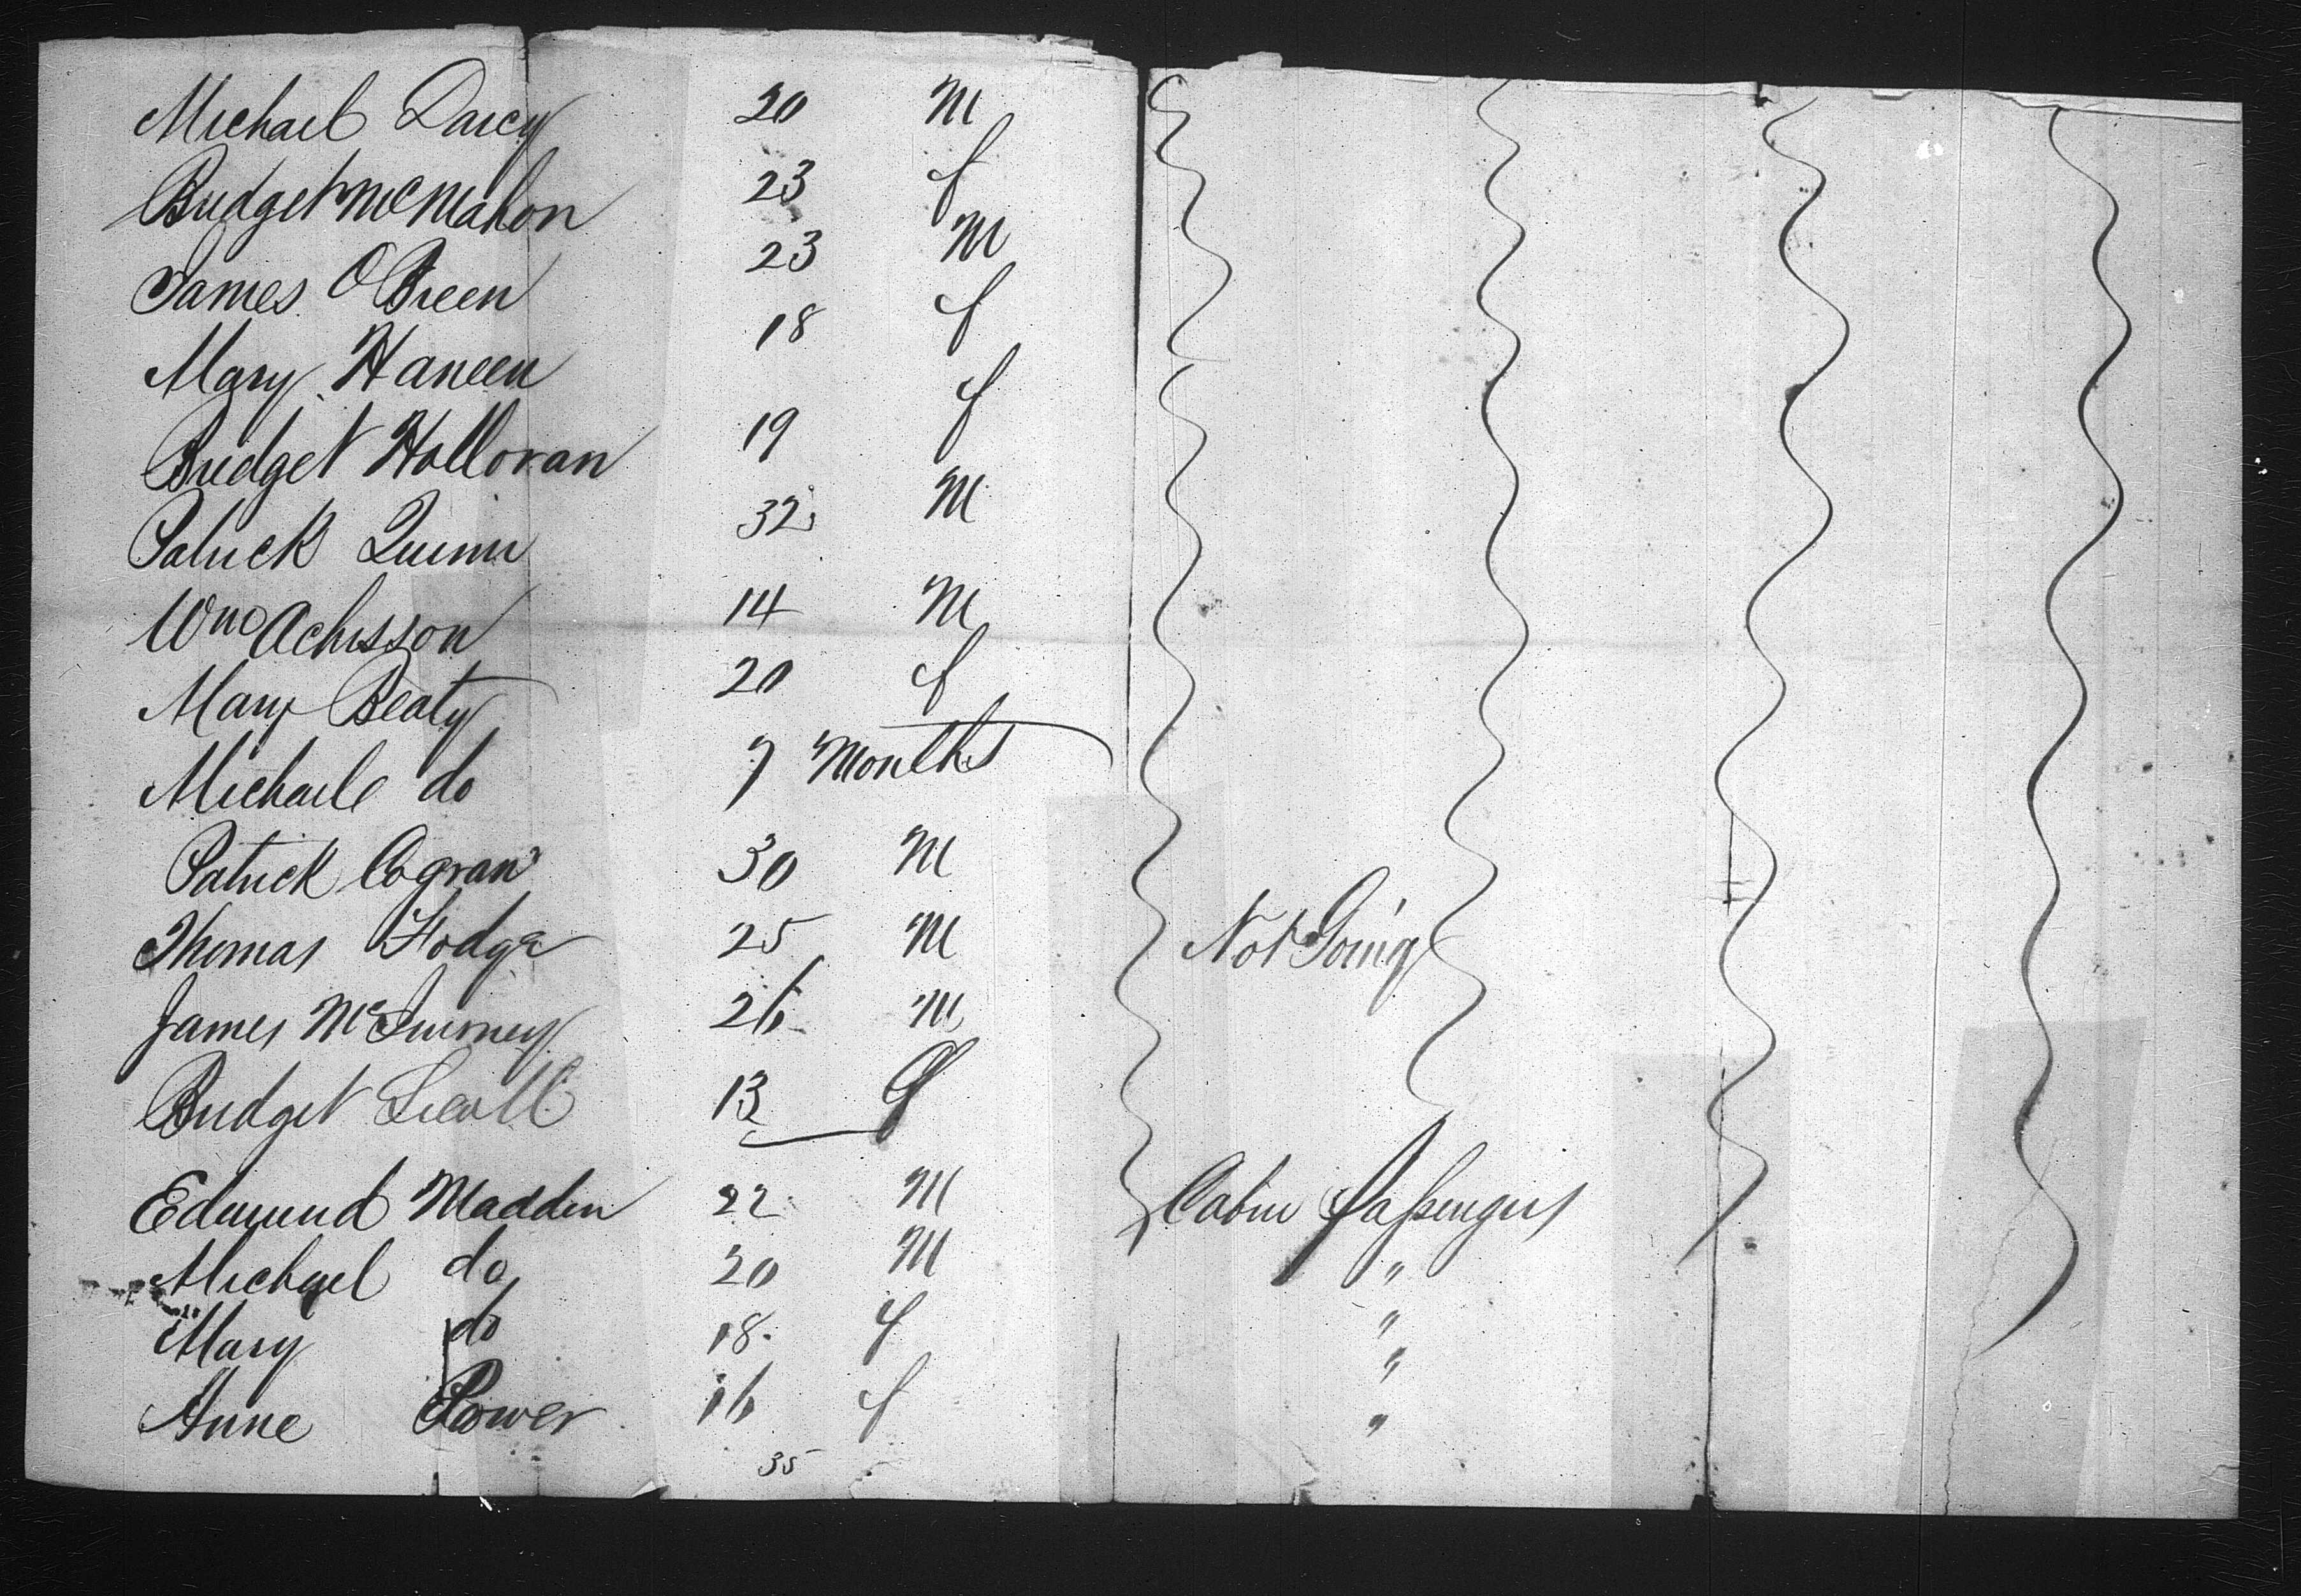 Michael Darcy 20 M
Bridget McMahon 23 f
James O'Breen 23 M
Mary Haneen 18 f
Bridget Holloran 19 f
Patrick Quinn 32 M
Wm Achisson 14 M
Mary Beaty 20 f
Michaele do 7 Months
Patrick Cogran 30 M
Thomas Hodge 25 M Not Going
James 26 M
Bridget 13 f
Edmund Madden 22 M Cabin Passengers
Michael do 20 M "
Mary do 18 f "
"
Anne Power 16 f "
35